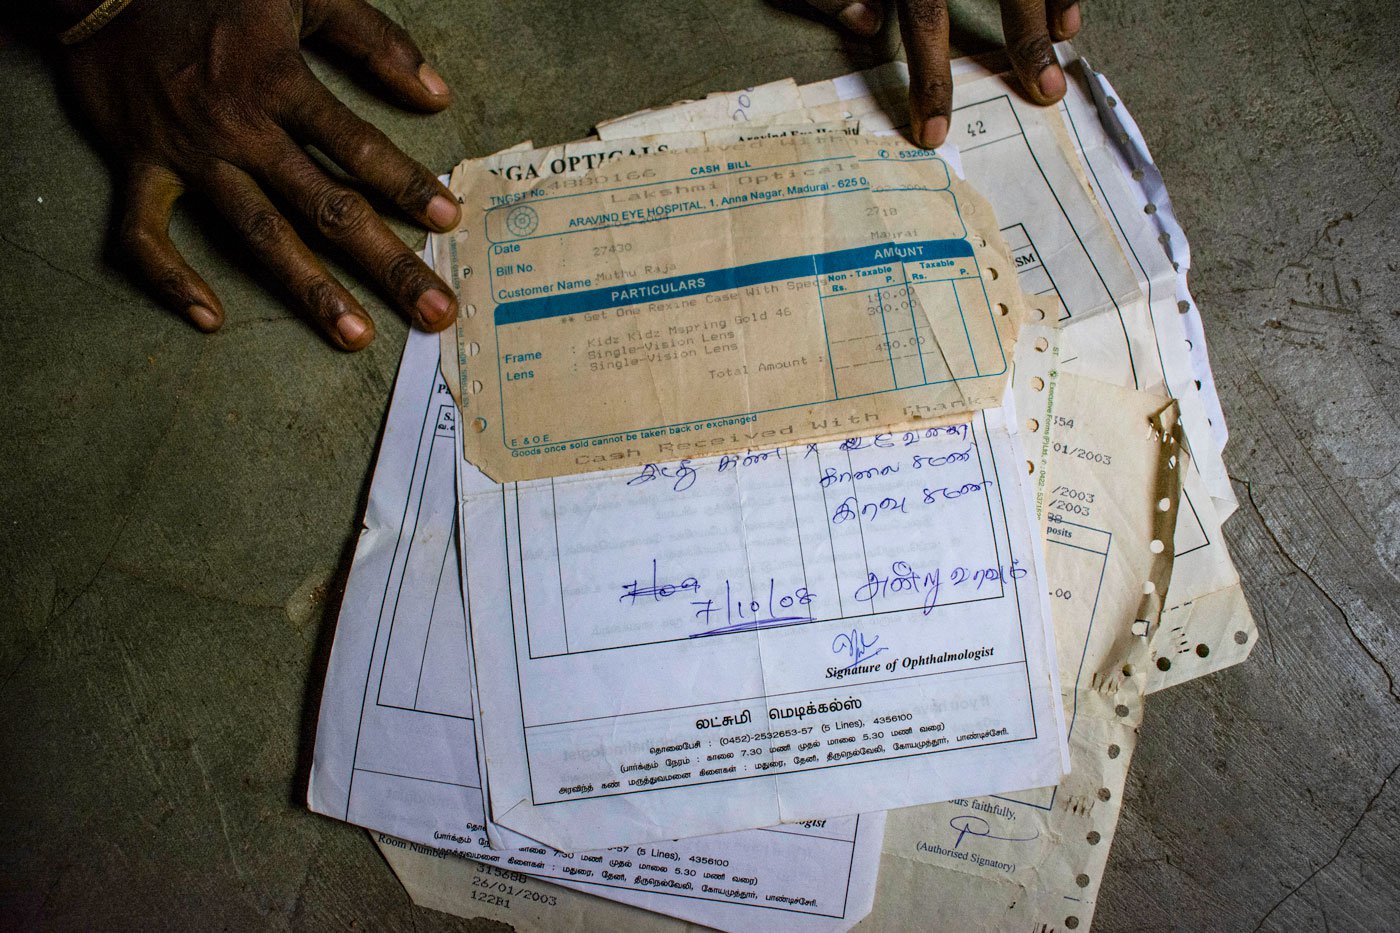 42
Aravind Eye Hospital
NGA OPTICALS
CASH BILL
✆ 532653
TNGST No. 4880166
Lakshmi Opticals
ARAVIND EYE HOSPITAL, 1, Anna Nagar, Madurai - 625 0
Date
2710
Bill No. 27430
Customer Name : Muthu Raja
PARTICULARS
AMOUNT
Non - Taxable
Taxable
Rs. P. Rs. P.
** Get One Rexine Case With Specs
Frame : Kidz Kidz Mspring Gold 46
150.00
Lens : Single-Vision Lens
300.00
: Single-Vision Lens
Total Amount : 450.00
E. & O.E.
Goods once sold cannot be taken back or exchanged
Cash Received With Thanks
காலை
இரவு
7/10/08
Signature of Ophthalmologist
லட்சுமி மெடிக்கல்ஸ்
தொலைபேசி : (0452)-2532653-57 (5 Lines), 4356100
(பார்க்கும் நேரம் : காலை 7.30 மணி முதல் மாலை 5.30 மணி வரை)
அரவிந்த் கண் மருத்துவமனை கிளைகள் : மதுரை, தேனி, திருநெல்வேலி, கோயமுத்தூர், பாண்டிச்சேரி.
SM
354
01/2003
/2003
/2003
posits
.00
ours faithfully,
(Authorised Signatory)
ologist
-57 (5 Lines), 4356100
(பார்க்கும் நே 7.30 மணி முதல் மாலை 5.30 மணி வரை)
மருத்துவமனை கிளைகள் : மதுரை, தேனி, திருநெல்வேலி, கோயமுத்தூர், பாண்டிச்சேரி.
Room Number
315688
26/01/2003
122B1